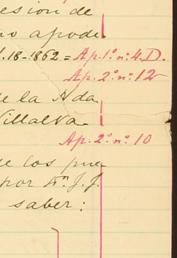 esion de
no apode
1.18-1862 = Ap. 1º nº 4 D.
Ap. 2º nº 12
e la Ada
Villalva.
Ap. 2º nº 10
e los pue
por Dn. J. J.
saber: